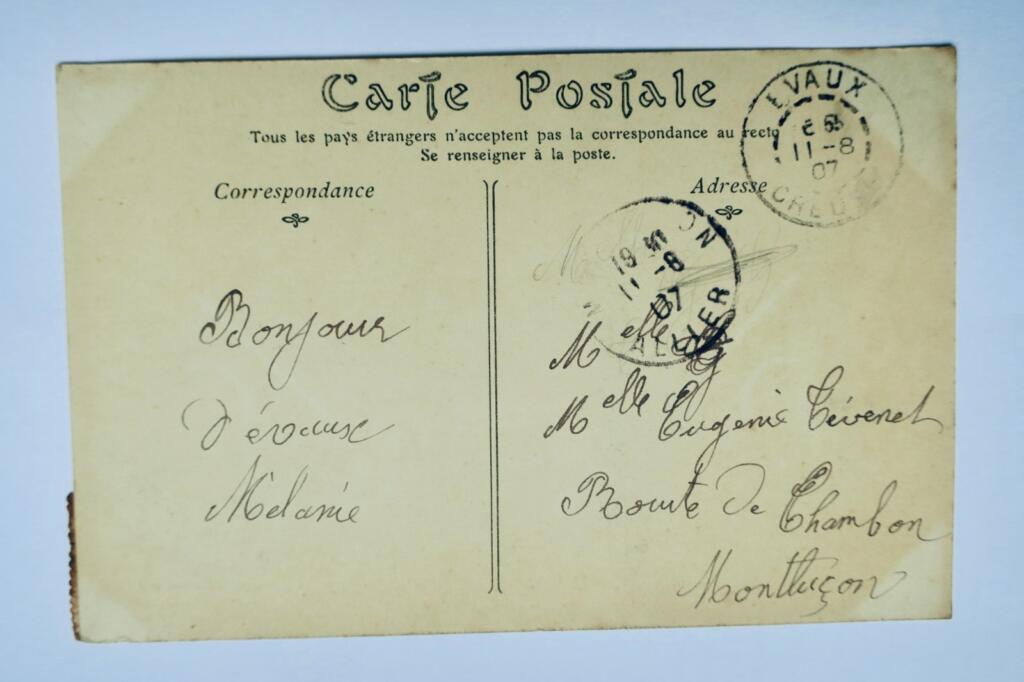 Carte Postale
Tous les pays étrangers n'acceptent pas la correspondance au recto
Se renseigner à la poste.
Correspondance
Adresse
EVAUX
11-8
07
CREUSE
ON
19
11-8
07
ALLIER
Bonjour
d'évaux
Mélanie
Melle
Melle Eugenie Tévenet
Route de Chambon
Montluçon